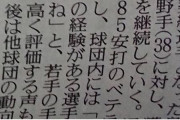 野手(38)に対し、
を継続していく。
85安打のベテラ
し、球団内には「
の経験がある選手
ね」と、若手の手
高く評価する声も
後は他球団の動向